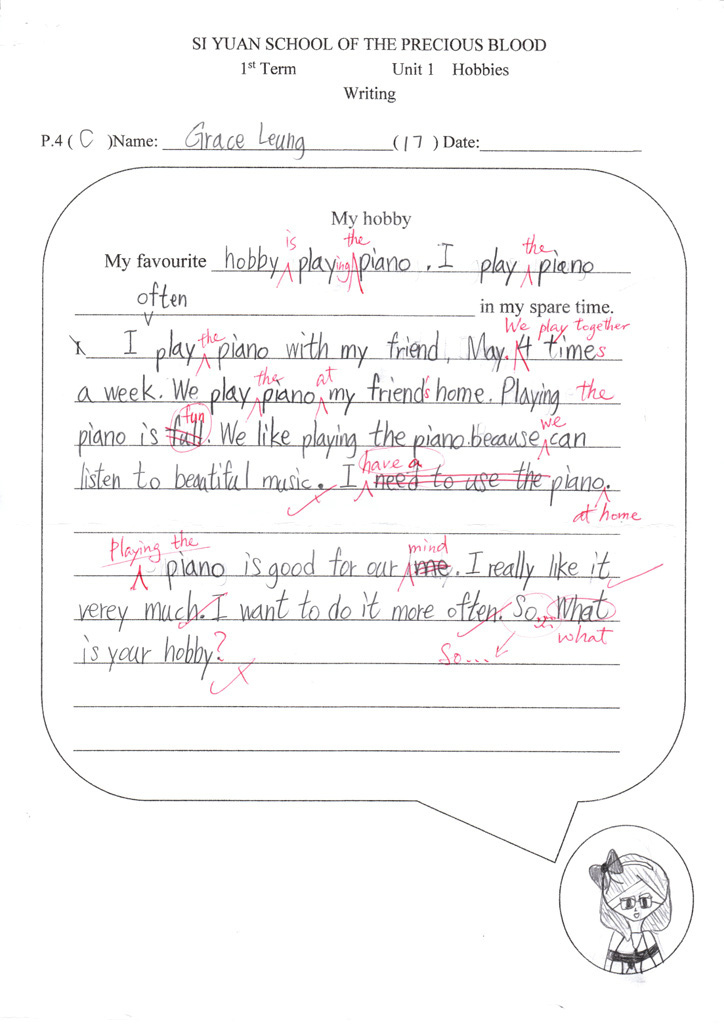 SI YUAN SCHOOL OF THE PRECIOUS BLOOD
1st Term Unit 1 Hobbies
Writing
P.4 ( C )Name: Grace Leung ( 17 ) Date:
My hobby
is the the
My favourite hobby playing piano . I play piano
often in my spare time.
We play together
I play the piano with my friend, May. 4 times
the at
a week. We play piano my friend's home. Playing the
fun we
piano is full. We like playing the piano.because can
have a
listen to beautiful music. I need to use the piano.
at home
Playing the mind
piano is good for our me. I really like it
verey much. I want to do it more often. So What
So... what
is your hobby?